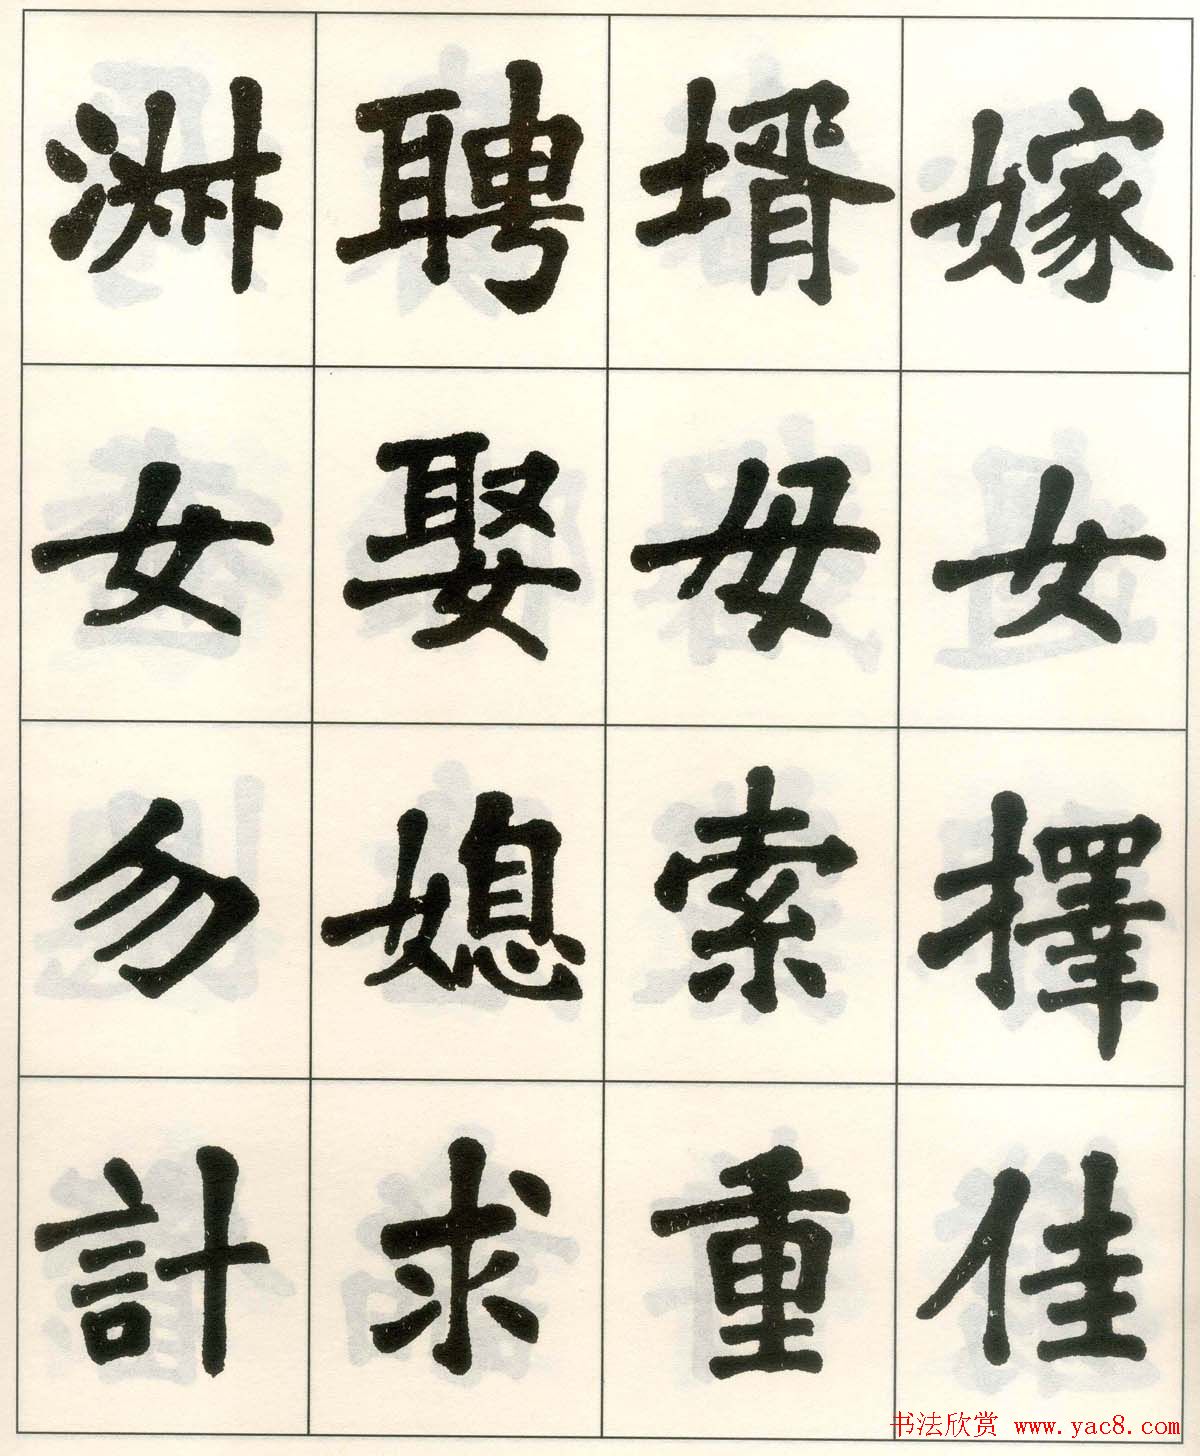 嫁女擇佳
壻毋索重
聘娶媳求
淑女勿計
书法欣赏 www.yac8.com